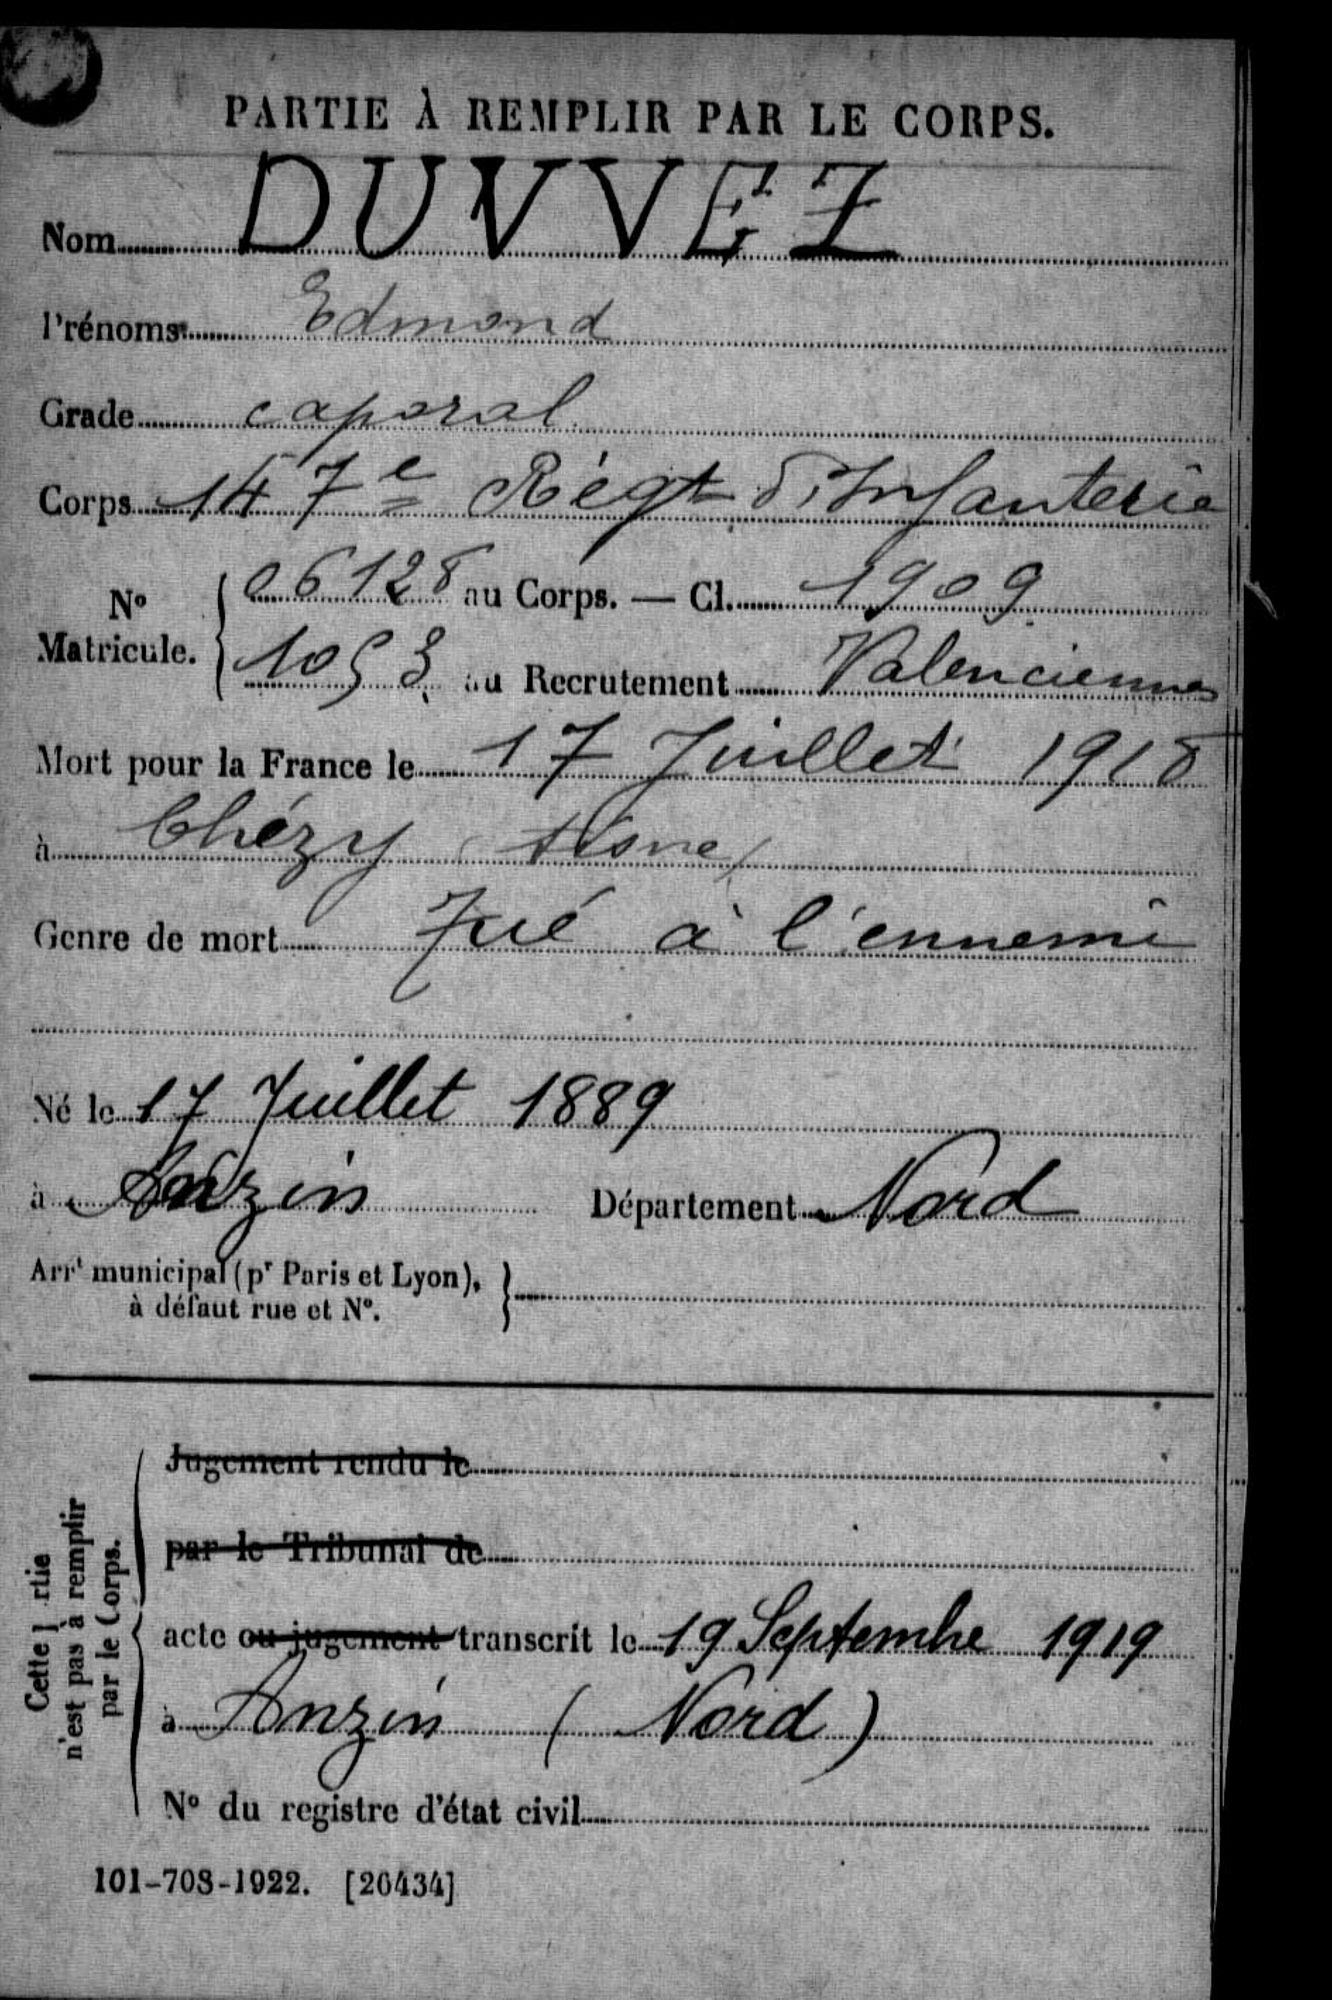 PARTIE À REMPLIR PAR LE CORPS.
Nom DUVVEZ
Prénoms Edmond
Grade caporal
Corps 147e Régt d'Infanterie
No Matricule. { 06128 au Corps. — Cl. 1909
1053 au Recrutement Valenciennes
Mort pour la France le 17 Juillet 1918
à Chézy (Aisne)
Genre de mort Tué à l'ennemi
Né le 17 Juillet 1889
à Anzin Département Nord
Arrt municipal (pr Paris et Lyon), à défaut rue et No. }
Cette partie n'est pas à remplir par le Corps.
Jugement rendu le
par le Tribunal de
acte ou jugement transcrit le 19 Septembre 1919
à Anzin (Nord)
No du registre d'état civil
101-708-1922. [26434]